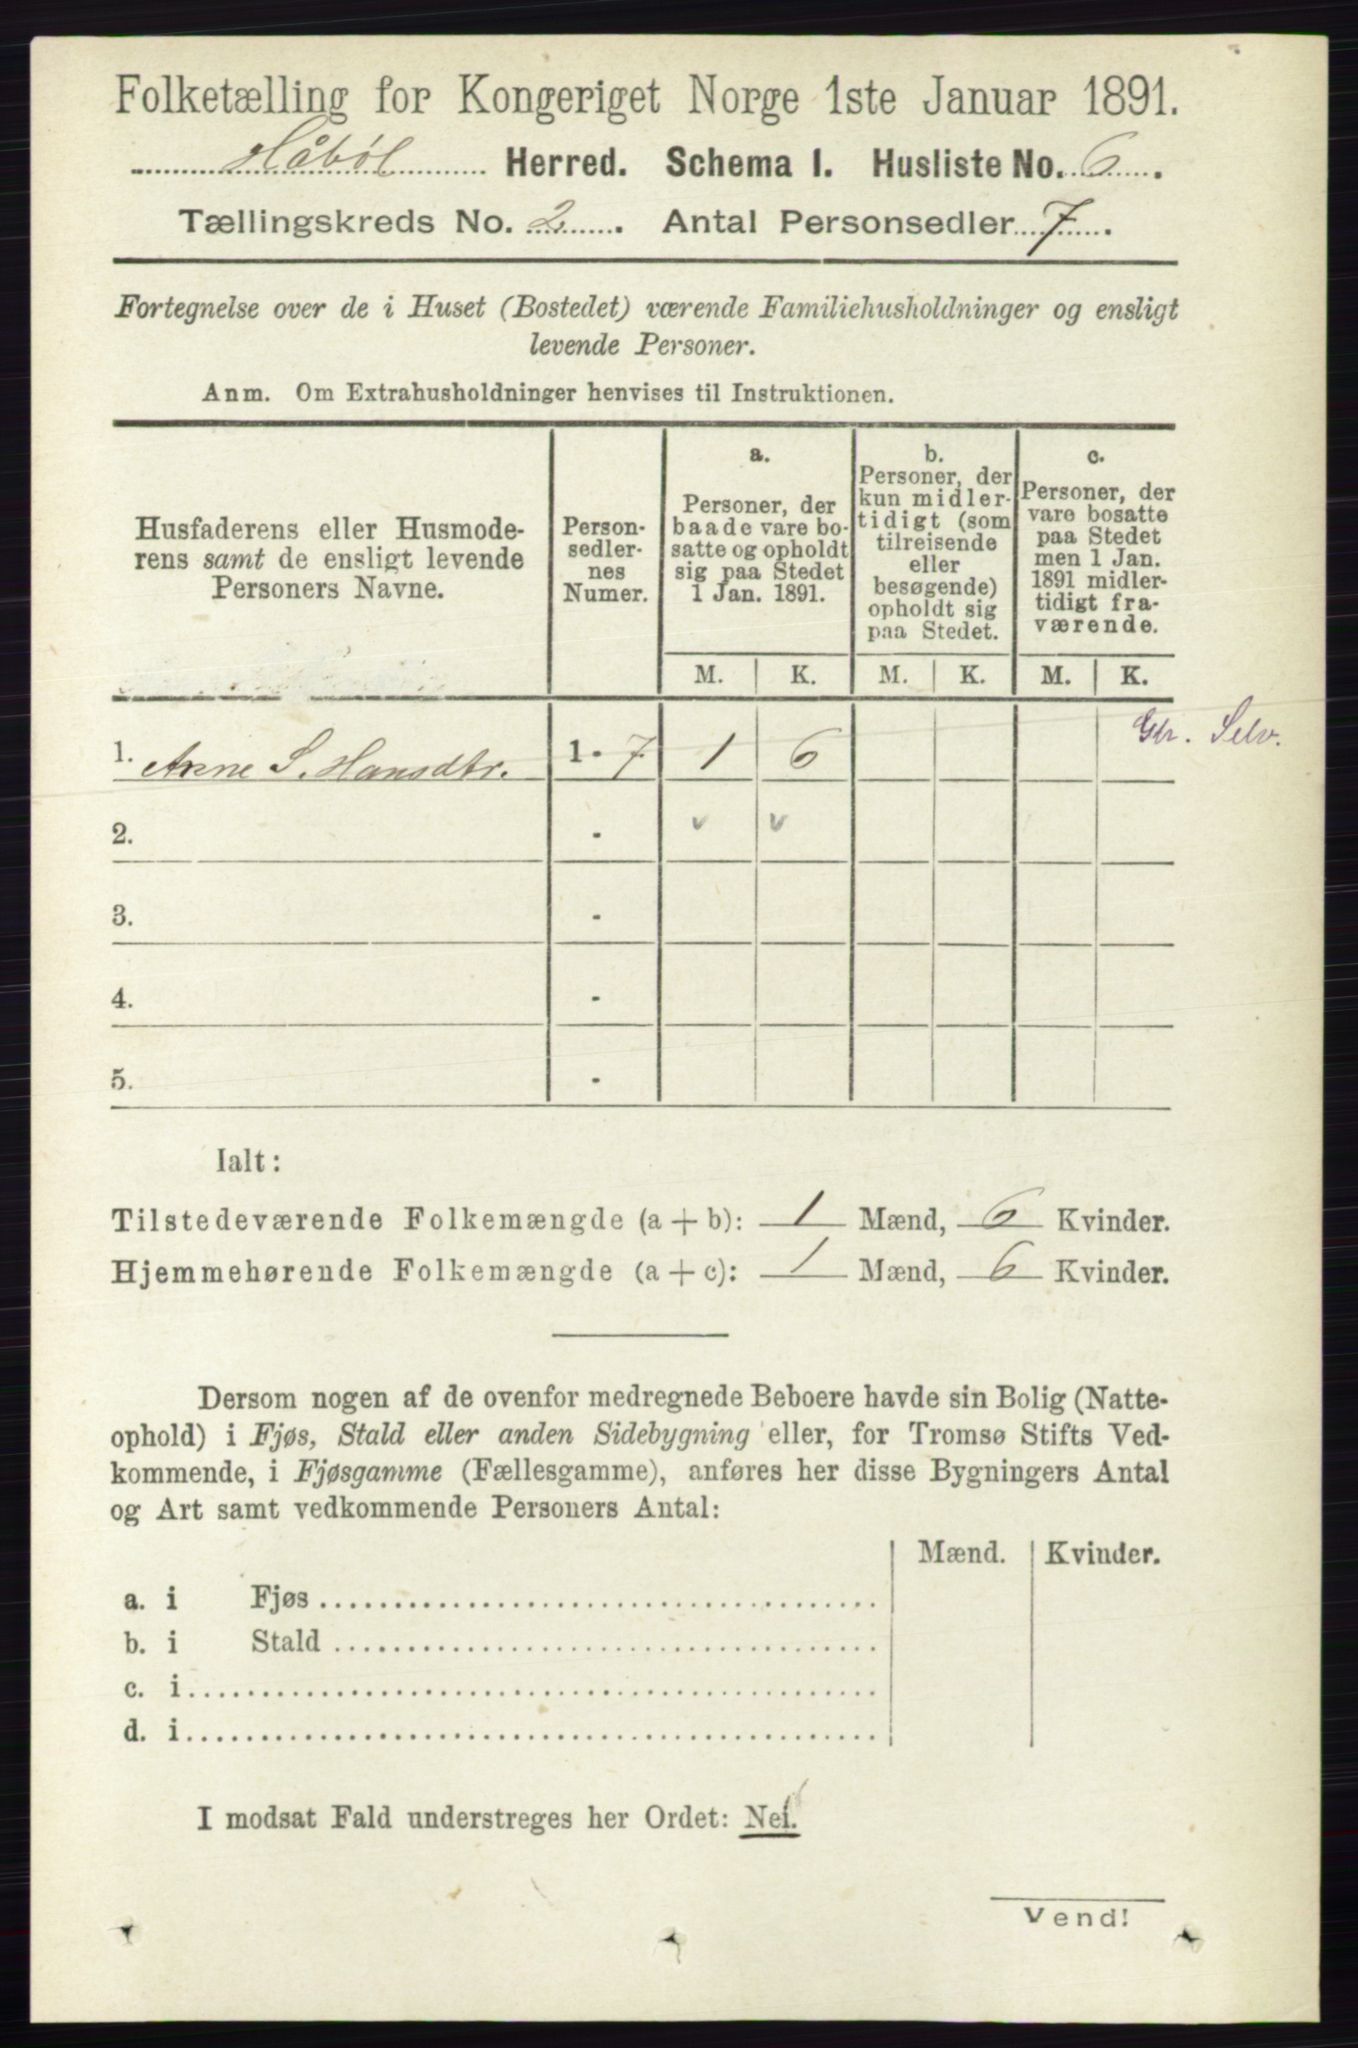 Folketælling for Kongeriget Norge 1ste Januar 1891.
Håbøl Herred. Schema I. Husliste No. 6.
Tællingskreds No. 2. Antal Personsedler 7.
Fortegnelse over de i Huset (Bostedet) værende Familiehusholdninger og ensligt
levende Personer.
Anm. Om Extrahusholdninger henvises til Instruktionen.
Husfaderens eller Husmode-
rens samt de ensligt levende
Personers Navne.
Person-
sedler-
nes
Numer.
a.
Personer, der
baade vare bo-
satte og opholdt
sig paa Stedet
1 Jan. 1891.
b.
Personer, der
kun midler-
tidigt (som
tilreisende
eller
besøgende)
opholdt sig
paa Stedet.
c.
Personer, der
vare bosatte
paa Stedet
men 1 Jan.
1891 midler-
tidigt fra-
værende.
M. K. M. K. M. K.
Gbr. Selv.
1. Anne S. Hansdtr. 1 - 7 1 6
2. - v v
3. -
4. -
5. -
Ialt:
Tilstedeværende Folkemængde (a + b): 1 Mænd, 6 Kvinder.
Hjemmehørende Folkemængde (a + c): 1 Mænd, 6 Kvinder.
Dersom nogen af de ovenfor medregnede Beboere havde sin Bolig (Natte-
ophold) i Fjøs, Stald eller anden Sidebygning eller, for Tromsø Stifts Ved-
kommende, i Fjøsgamme (Fællesgamme), anføres her disse Bygningers Antal
og Art samt vedkommende Personers Antal:
Mænd. Kvinder.
a. i Fjøs
b. i Stald
c. i
d. i
I modsat Fald understreges her Ordet: Nei.
Vend!